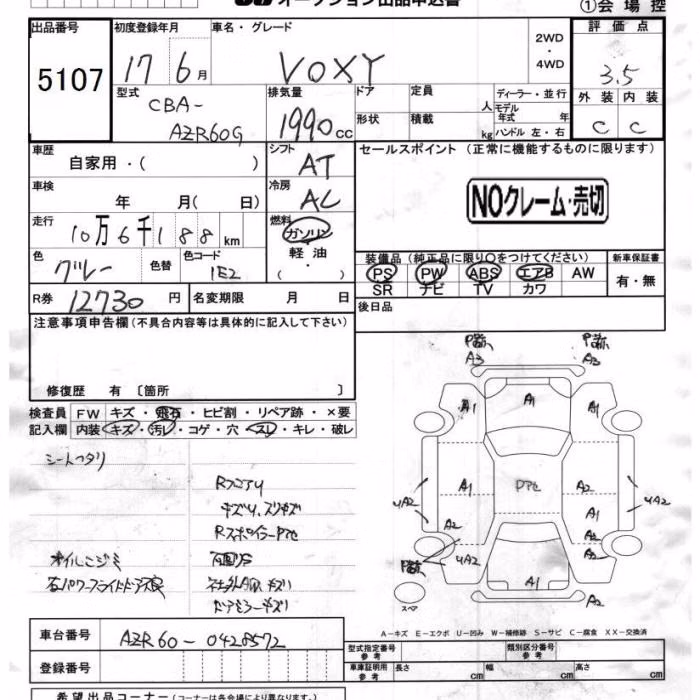 オークション出品申込書
①会場控
出品番号
5107
初度登録年月
17 6月
車名・グレード
VOXY
2WD
・
4WD
評価点
3.5
外装 内装
C C
型式
CBA-
AZR60G
排気量
1990cc
ドア
定員
人
形状
積載
kg
ディーラー・並行
モデル
年式 年
ハンドル 左・右
車歴
自家用・( )
シフト
AT
セールスポイント (正常に機能するものに限ります)
NOクレーム・売切
車検
年 月( 日)
冷房
AC
走行
10万6千188km
燃料
ガソリン
軽油
・
( )
色
グレー
色替
色コード
1E2
装備品 (純正品に限り○をつけてください)
PS PW ABS エアB AW
SR ナビ TV カワ
新車保証書
有・無
R券
12730円
名変期限 月 日
後日品
注意事項申告欄(不具合内容等は具体的に記入して下さい)
修復歴 有 〔箇所 〕
検査員 FW キズ・飛石・ヒビ割・リペア跡・×要
記入欄 内装 キズ・汚レ・コゲ・穴・スレ・キレ・破レ
シートヘタリ
キズリ、スリキズ
オイルニジミ
右パワースライドドア不良
A3 A3
A1 A1 A1
A1 A2
A1
UA2 UA2
A2 A2
A2
UA2 A2
A1
A2
スペア
A-キズ E-エクボ U-凹み W-補修跡 S-サビ C-腐食 XX-交換済
車台番号
AZR60-0428572
登録番号
型式指定番号
参考
類別区分番号
参考
車庫証明用
参考
長さ cm
幅 cm
高さ cm
希望出品コーナー(コーナーは各会場により異なります。)